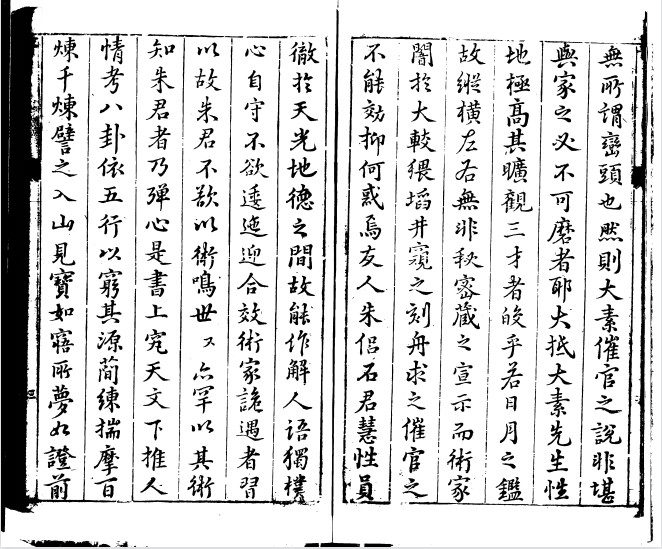 無所謂巒頭也然則大素催官之說非堪
輿家之必不可磨者耶大抵大素先生性
地極高其曠觀三才者皎乎若日月之鑑
故縱橫左右無非秋密藏之宣示而術家
闇於大較猥塪井窺之刻舟求之催官之
不能効抑何惑焉友人朱侶石君慧性員
徹於天光地德之間故能作解人語獨樸
心自守不欲逶迤迎合效術家詭遇者習
以故朱君不欲以術鳴世又亦罕以其術
知朱君者乃殫心是書上究天文下推人
情考八卦依五行以窮其源簡練揣摩百
煉千煉譬之入山見寶如寤所夢如證前
三